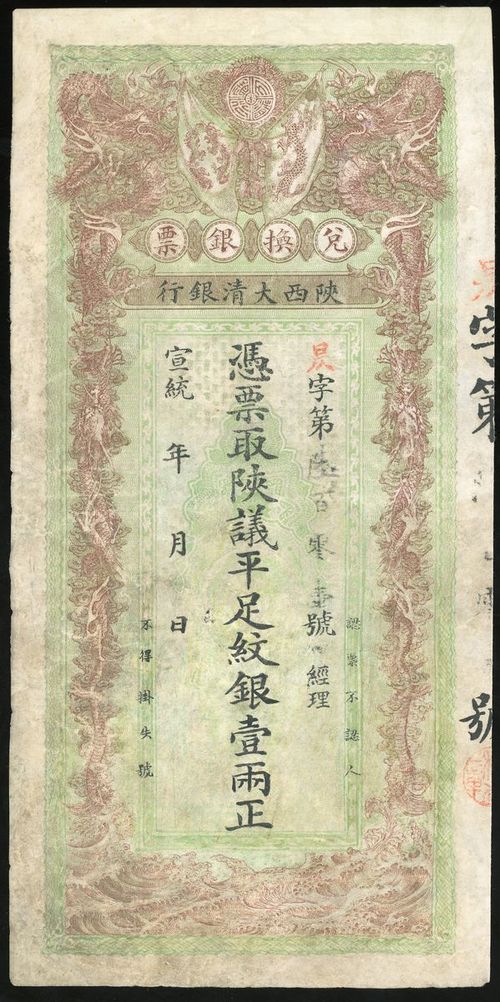 兌換銀票
陝西大清銀行
認票不認人
字第陸百零壹號 經理
憑票取陝議平足紋銀壹兩正
宣統 年 月 日
不得掛失號
字第
號